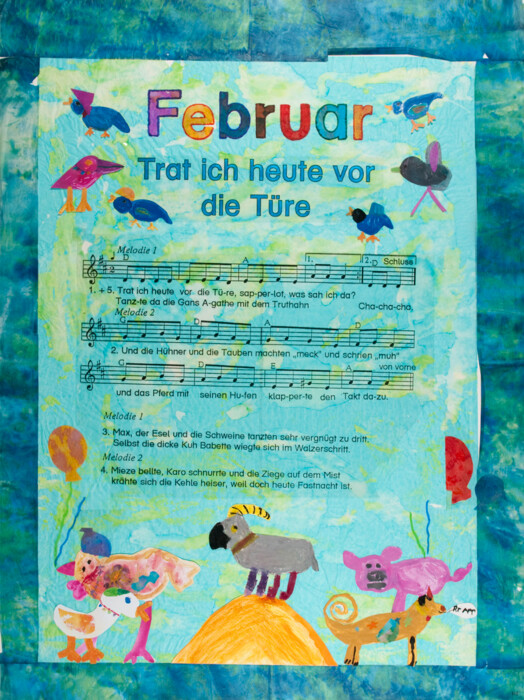 Februar
Trat ich heute vor
die Türe
Melodie 1
D A 1. 2. D Schluss
1. + 5. Trat ich heute vor die Tü-re, sap-per-lot, was sah ich da?
Tanz-te da die Gans A-gathe mit dem Truthahn Cha-cha-cha,
Melodie 2
G D A D
2. Und die Hühner und die Tauben machten „meck" und schrien „muh"
G D E A von vorne
und das Pferd mit seinen Hu-fen klap-per-te den Takt da-zu.
Melodie 1
3. Max, der Esel und die Schweine tanzten sehr vergnügt zu dritt.
Selbst die dicke Kuh Babette wiegte sich im Walzerschritt.
Melodie 2
4. Mieze bellte, Karo schnurrte und die Ziege auf dem Mist
krähte sich die Kehle heiser, weil doch heute Fastnacht ist.